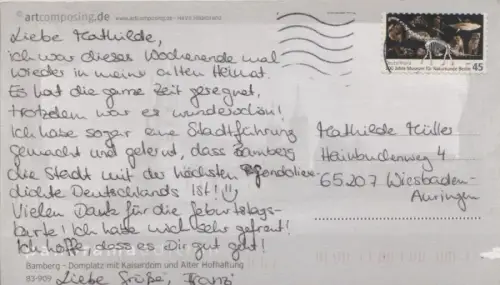 ©artcomposing.de www.artcomposing.de
Liebe Mathilde,
ich war dieses Wochenende mal
wieder in meiner alten Heimat.
Es hat die ganze Zeit geregnet,
trotzdem war es wunderschön!
Ich habe sogar eine Stadtführung
gemacht und gelernt, dass Bamberg
die Stadt mit der höchsten
dichte Deutschlands ist! :)
Vielen Dank für die Geburtstags-
karte! Ich hatte mich sehr gefreut!
Ich hoffe, dass es Dir gut geht!
Bamberg – Domplatz mit Kaiserdom und Alter Hofhaltung
83-909
Liebe Grüße, Franzi
Deutschland
200 Jahre Museum für Naturkunde Berlin 45
Mathilde Müller
Hainbuchenweg 4
65207 Wiesbaden-
Auringen